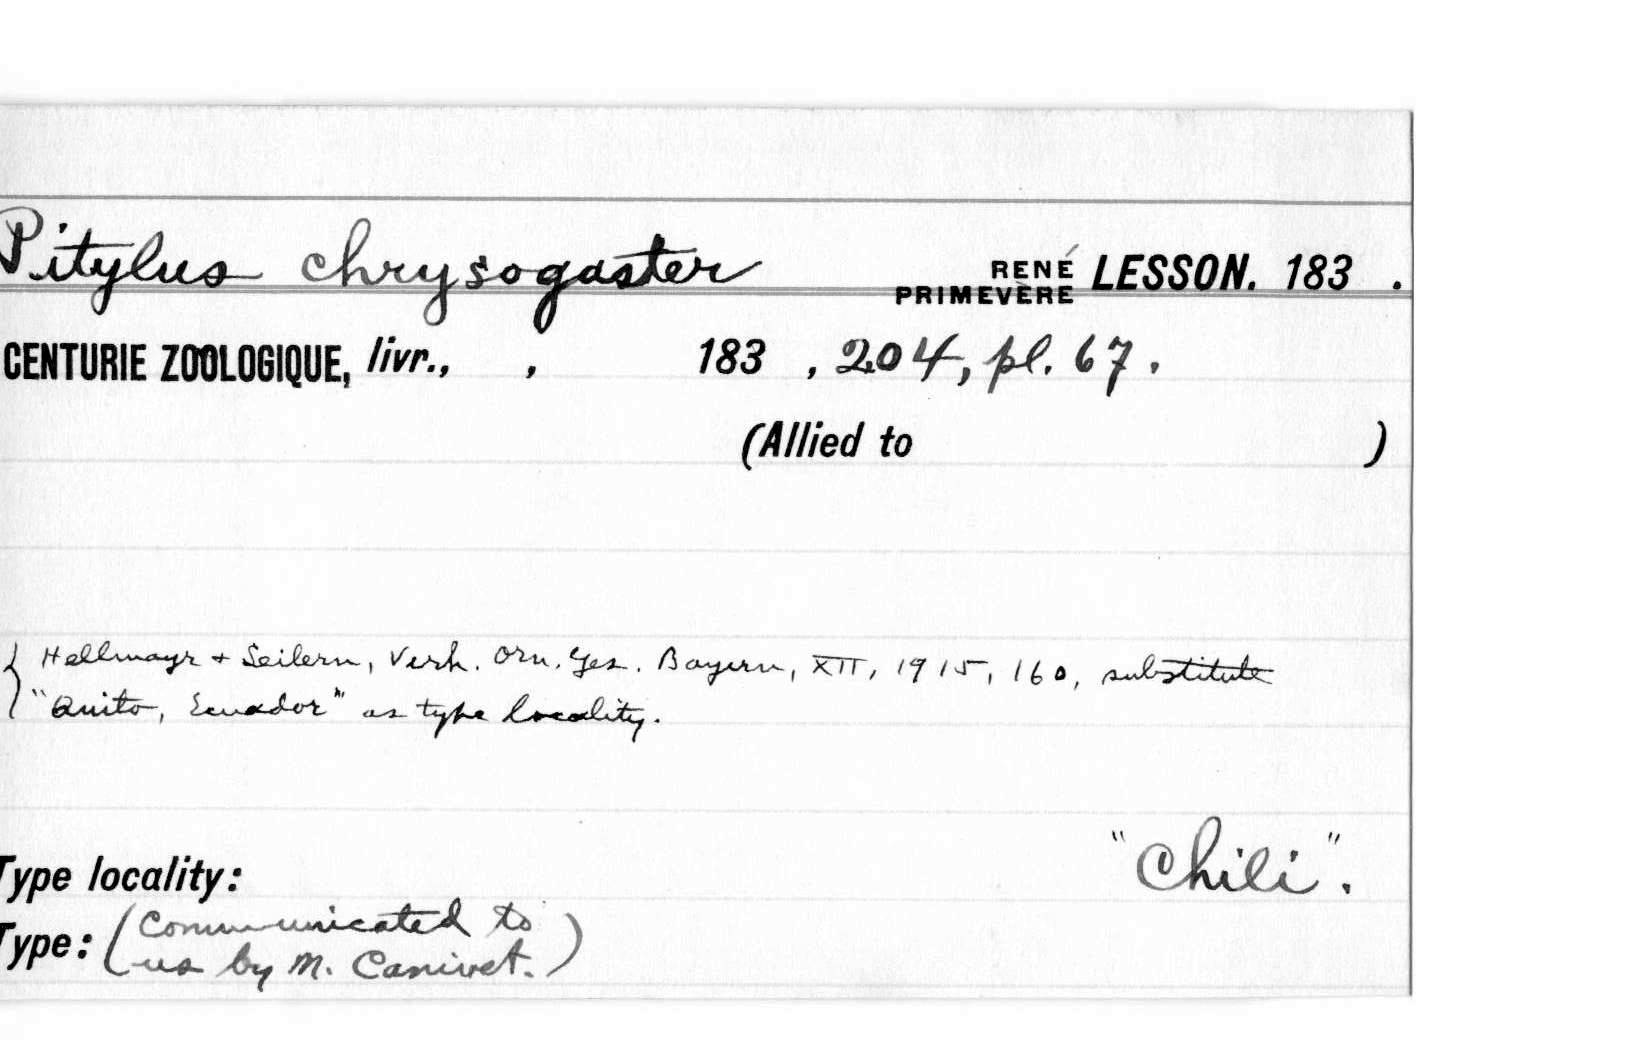 Pitylus chrysogaster RENÉ PRIMEVÈRE LESSON. 183 .
CENTURIE ZOOLOGIQUE, livr., , 183 , 204, pl. 67.
(Allied to )
{ Hellmayr + Seilern, Verh. Orn. Ges. Bayern, XII, 1915, 160, substitute
"Quito, Ecuador" as type locality.
"Chili".
Type locality:
Type: (Communicated to
us by M. Canivet.)